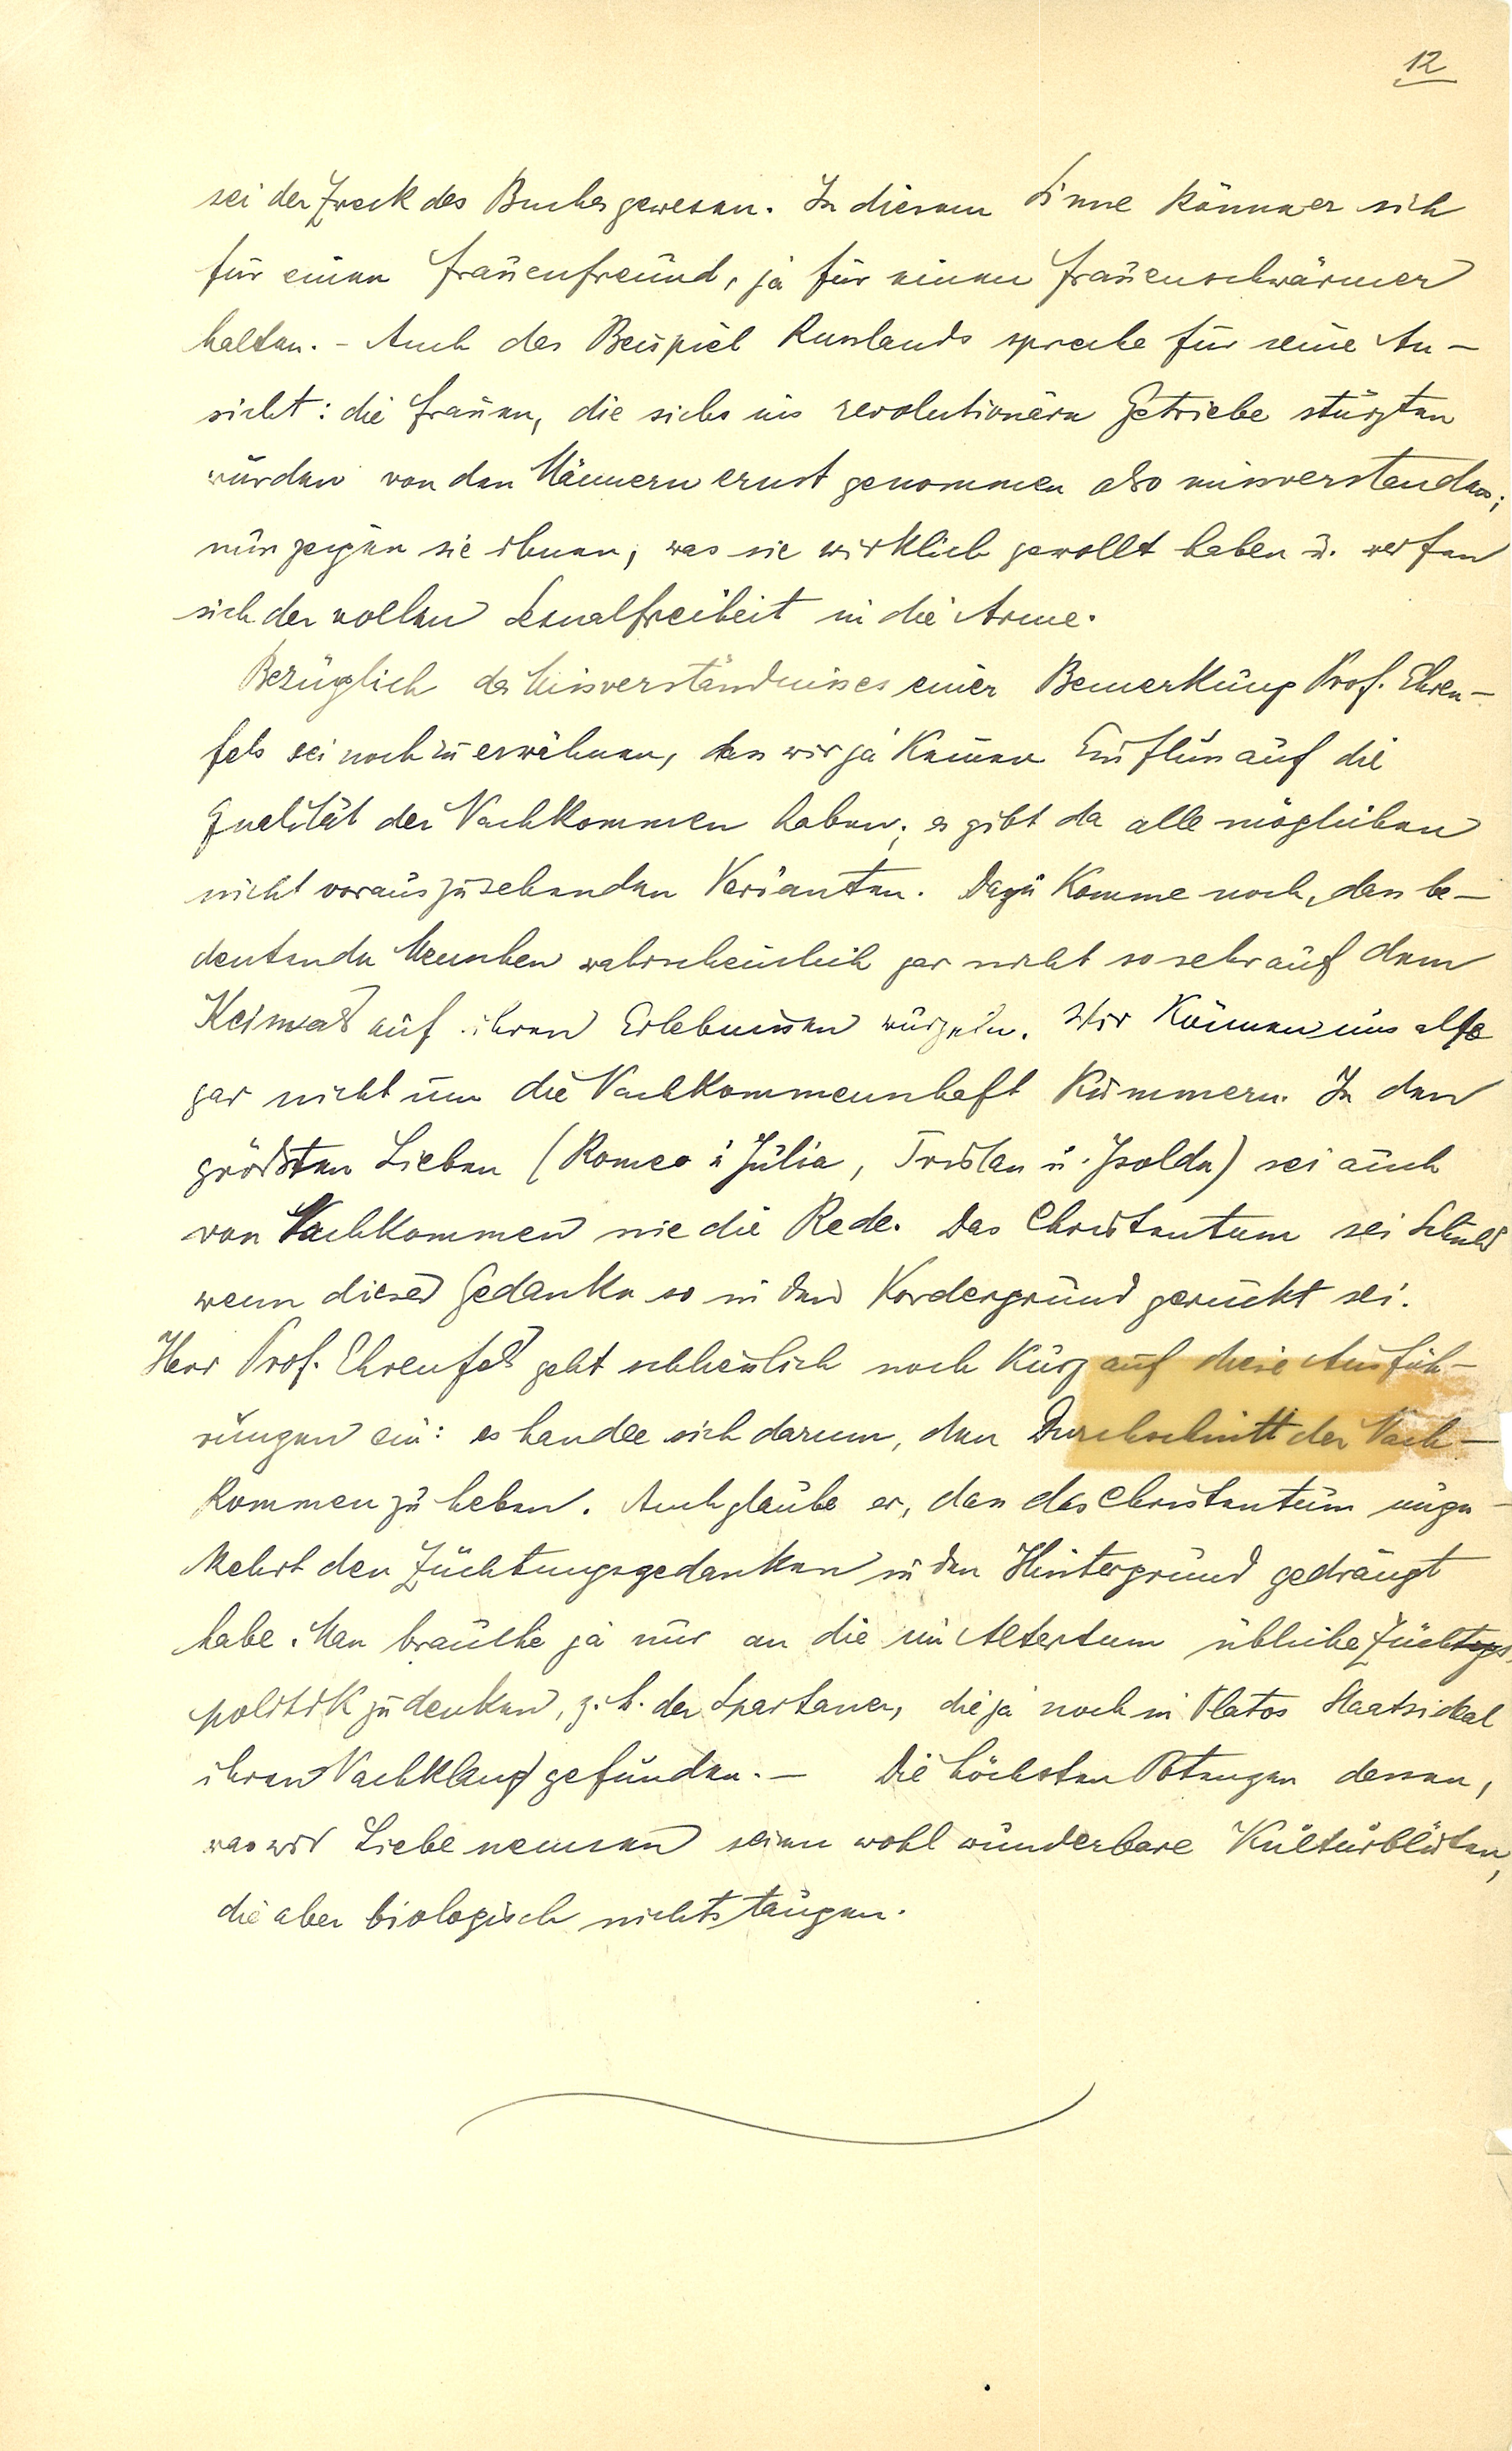 12
sei der Zweck des Buches gewesen. In diesem Sinne könne er sich
für einen Frauenfreund, ja für einen Frauenschwärmer
halten. – Auch das Beispiel Russlands spreche für seine An-
sicht: die Frauen, die sich ins revolutionäre Getriebe stürzten
wurden von den Männern ernst genommen also missverstanden;
nun zeigen sie ihnen, was sie wirklich gewollt haben u. werfen
sich der vollen Sexualfreiheit in die Arme.
Bezüglich des Missverständnisses einer Bemerkung Prof. Ehren-
fels sei noch zu erwähnen, dass wir ja keinen Einfluss auf die
Qualität der Nachkommen haben; es gibt da alle möglichen
nicht vorauszusehenden Varianten. Dazu komme noch, dass be-
deutende Menschen wahrscheinlich gar nicht so sehr auf dem
Keim als auf ihren Erlebnissen wurzeln. Wir können uns also
gar nicht um die Nachkommenschaft kümmern. In den
grössten Lieben (Romeo u Julia, Tristan u. Isolde) sei auch
von Nachkommen nie die Rede. Das Christentum sei Schuld
wenn dieser Gedanke so in den Vordergrund gerückt sei.
Herr Prof. Ehrenfels geht schliesslich noch kurz auf diese Ausfüh-
rungen ein: es handle sich darum, den Durchschnitt der Nach-
kommen zu heben. Auch glaube er, dass das Christentum umge-
kehrt den Züchtungsgedanken in den Hintergrund gedrängt
habe. Man brauche ja nur an die im Altertum übliche Züchtgs-
politik zu denken, z. B. der Spartaner, die ja noch in Platos Staatsideal
ihren Nachklang gefunden. – Die höchsten Potenzen dessen,
was wir Liebe nennen seien wohl wunderbare Kulturblüten,
die aber biologisch nichts taugen.